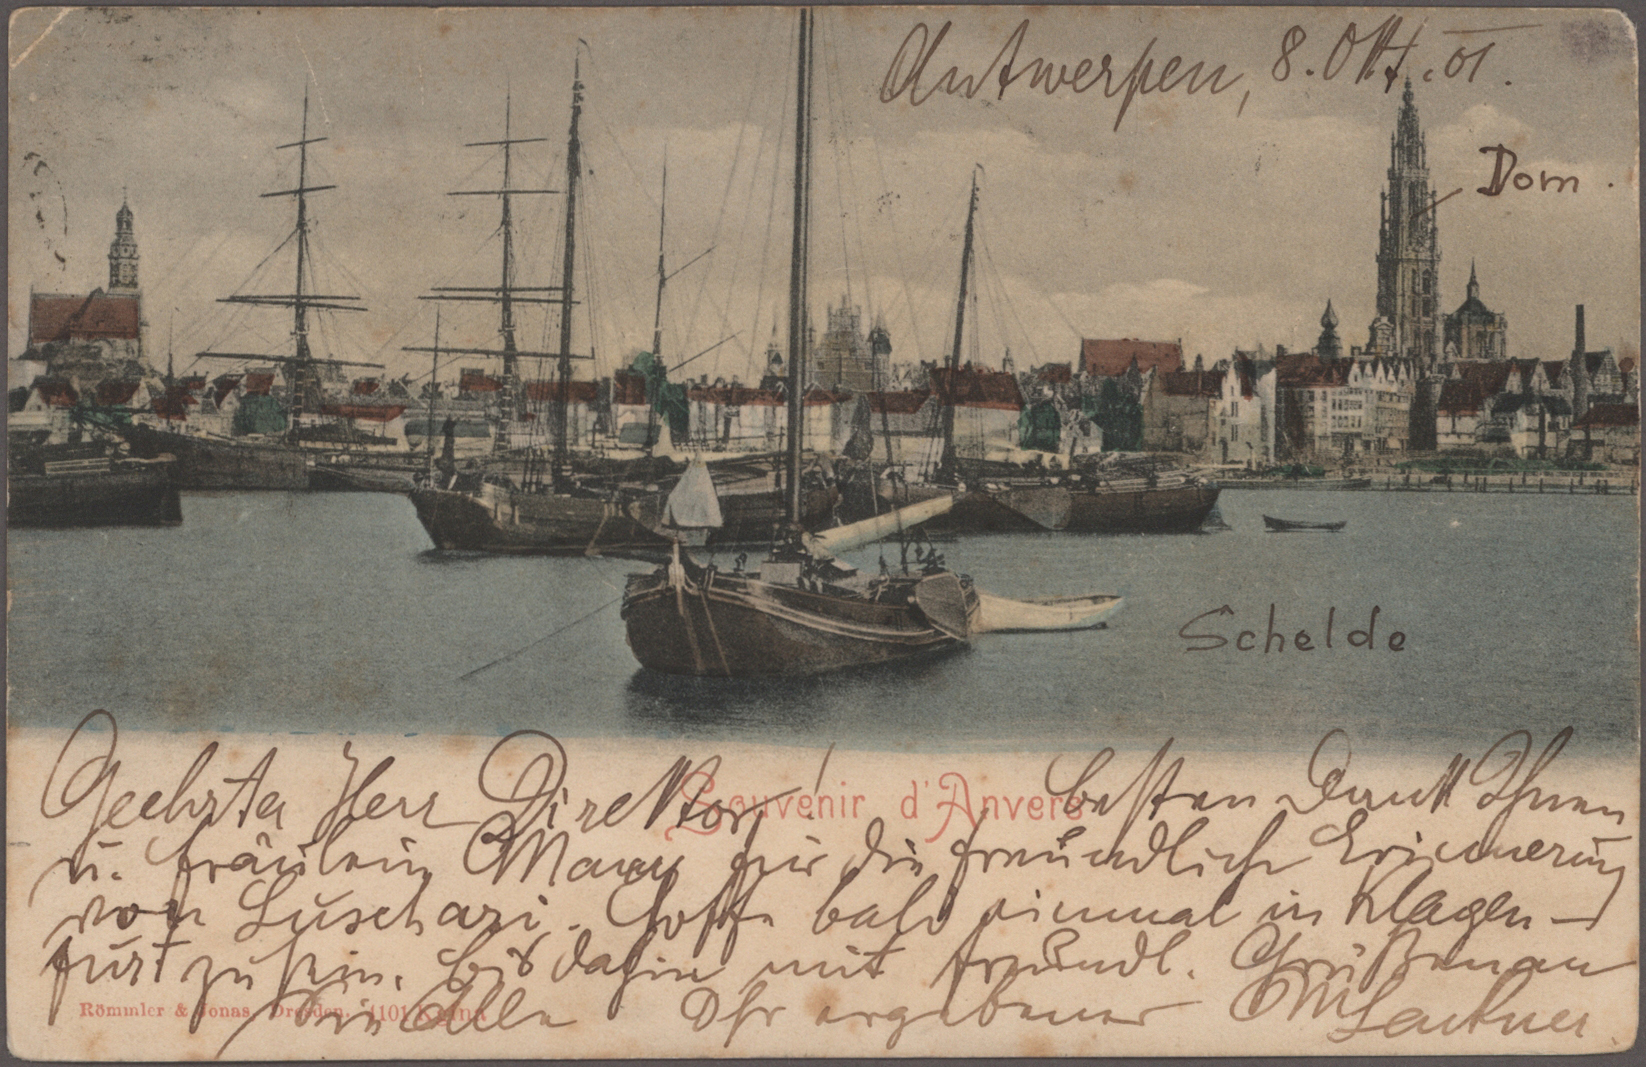 Antwerpen, 8. Okt. 01.
Dom.
Schelde
Souvenir d'Anvers
Geehrter Herr Direktor! besten Dank Ihnen
u. Fräulein für die freundliche Erinnerung
von Luschari. Hoffe bald einmal in Klagen-
furt zu sein. bis dahin mit freundl. Grüßen an
Sie Alle Ihr ergebener
Römmler & Jonas, Dresden. 1101